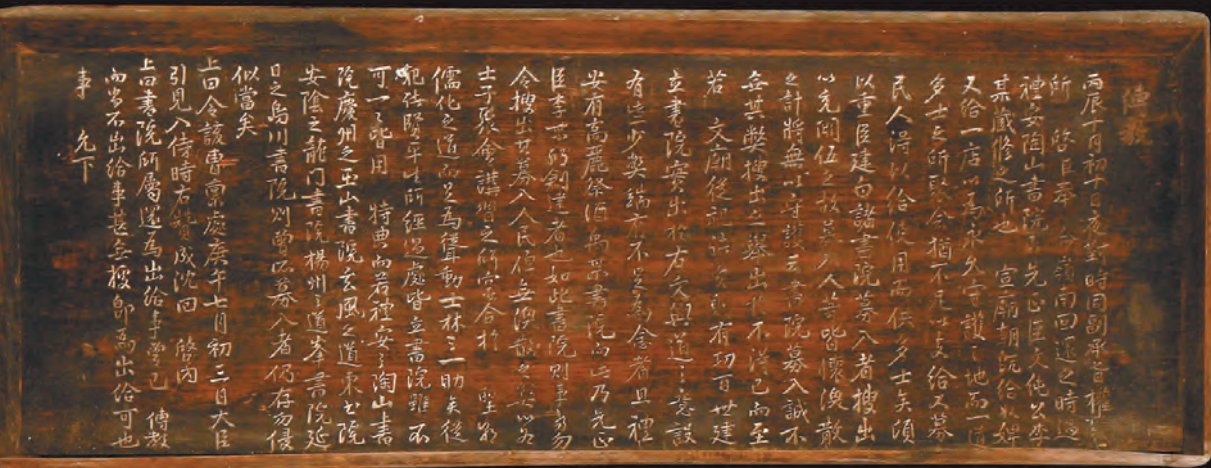 傳敎
丙辰丁月初十日夜對時同副承旨權
所 啓臣奉 命嶺南回還之時過
禮安陶山書院乃先正臣文純公李
某藏修之所也 宣廟朝 給奴婢
又給一店以爲永久守護之地而一道
多士之所聚會猶不足以支給又募
民人得以給使用而供多士矣頃
以重臣建白諸書院募入者搜出
以充闕伍之故募入人等皆懷渙散
之計將無以守護云書院募入誠不
無其弊搜出之擧出於不得已而至
若 文廟從祀諸 有功百世建
立書院實出於右文興道之意設
有些少弊端亦不足爲念者且禮
安有高麗祭酒禹 書院而此乃先正
臣李 創建者也如此書院則事勿
令搜出其募入人民俾無渙散之弊以爲
士子聚會講習之所實合於 聖朝
儒化之道而足爲聳動士林之一助矣從
祀諸賢平生所經過處皆立書院雖不
可一齊用 特典而若禮安之陶山書
院慶州之玉山書院玄風之道東書院
安陰之龍門書院楊州之道峯書院延
日之烏川書院則曾已募入者仍存勿侵
似當矣
上曰令該曹稟處庚午七月初三日大臣
引見入侍時右贊成沈 所 啓內
上曰書院所屬還爲出給事曾已 傳敎
而尙不出給事甚無據卽爲出給可也
事 允下